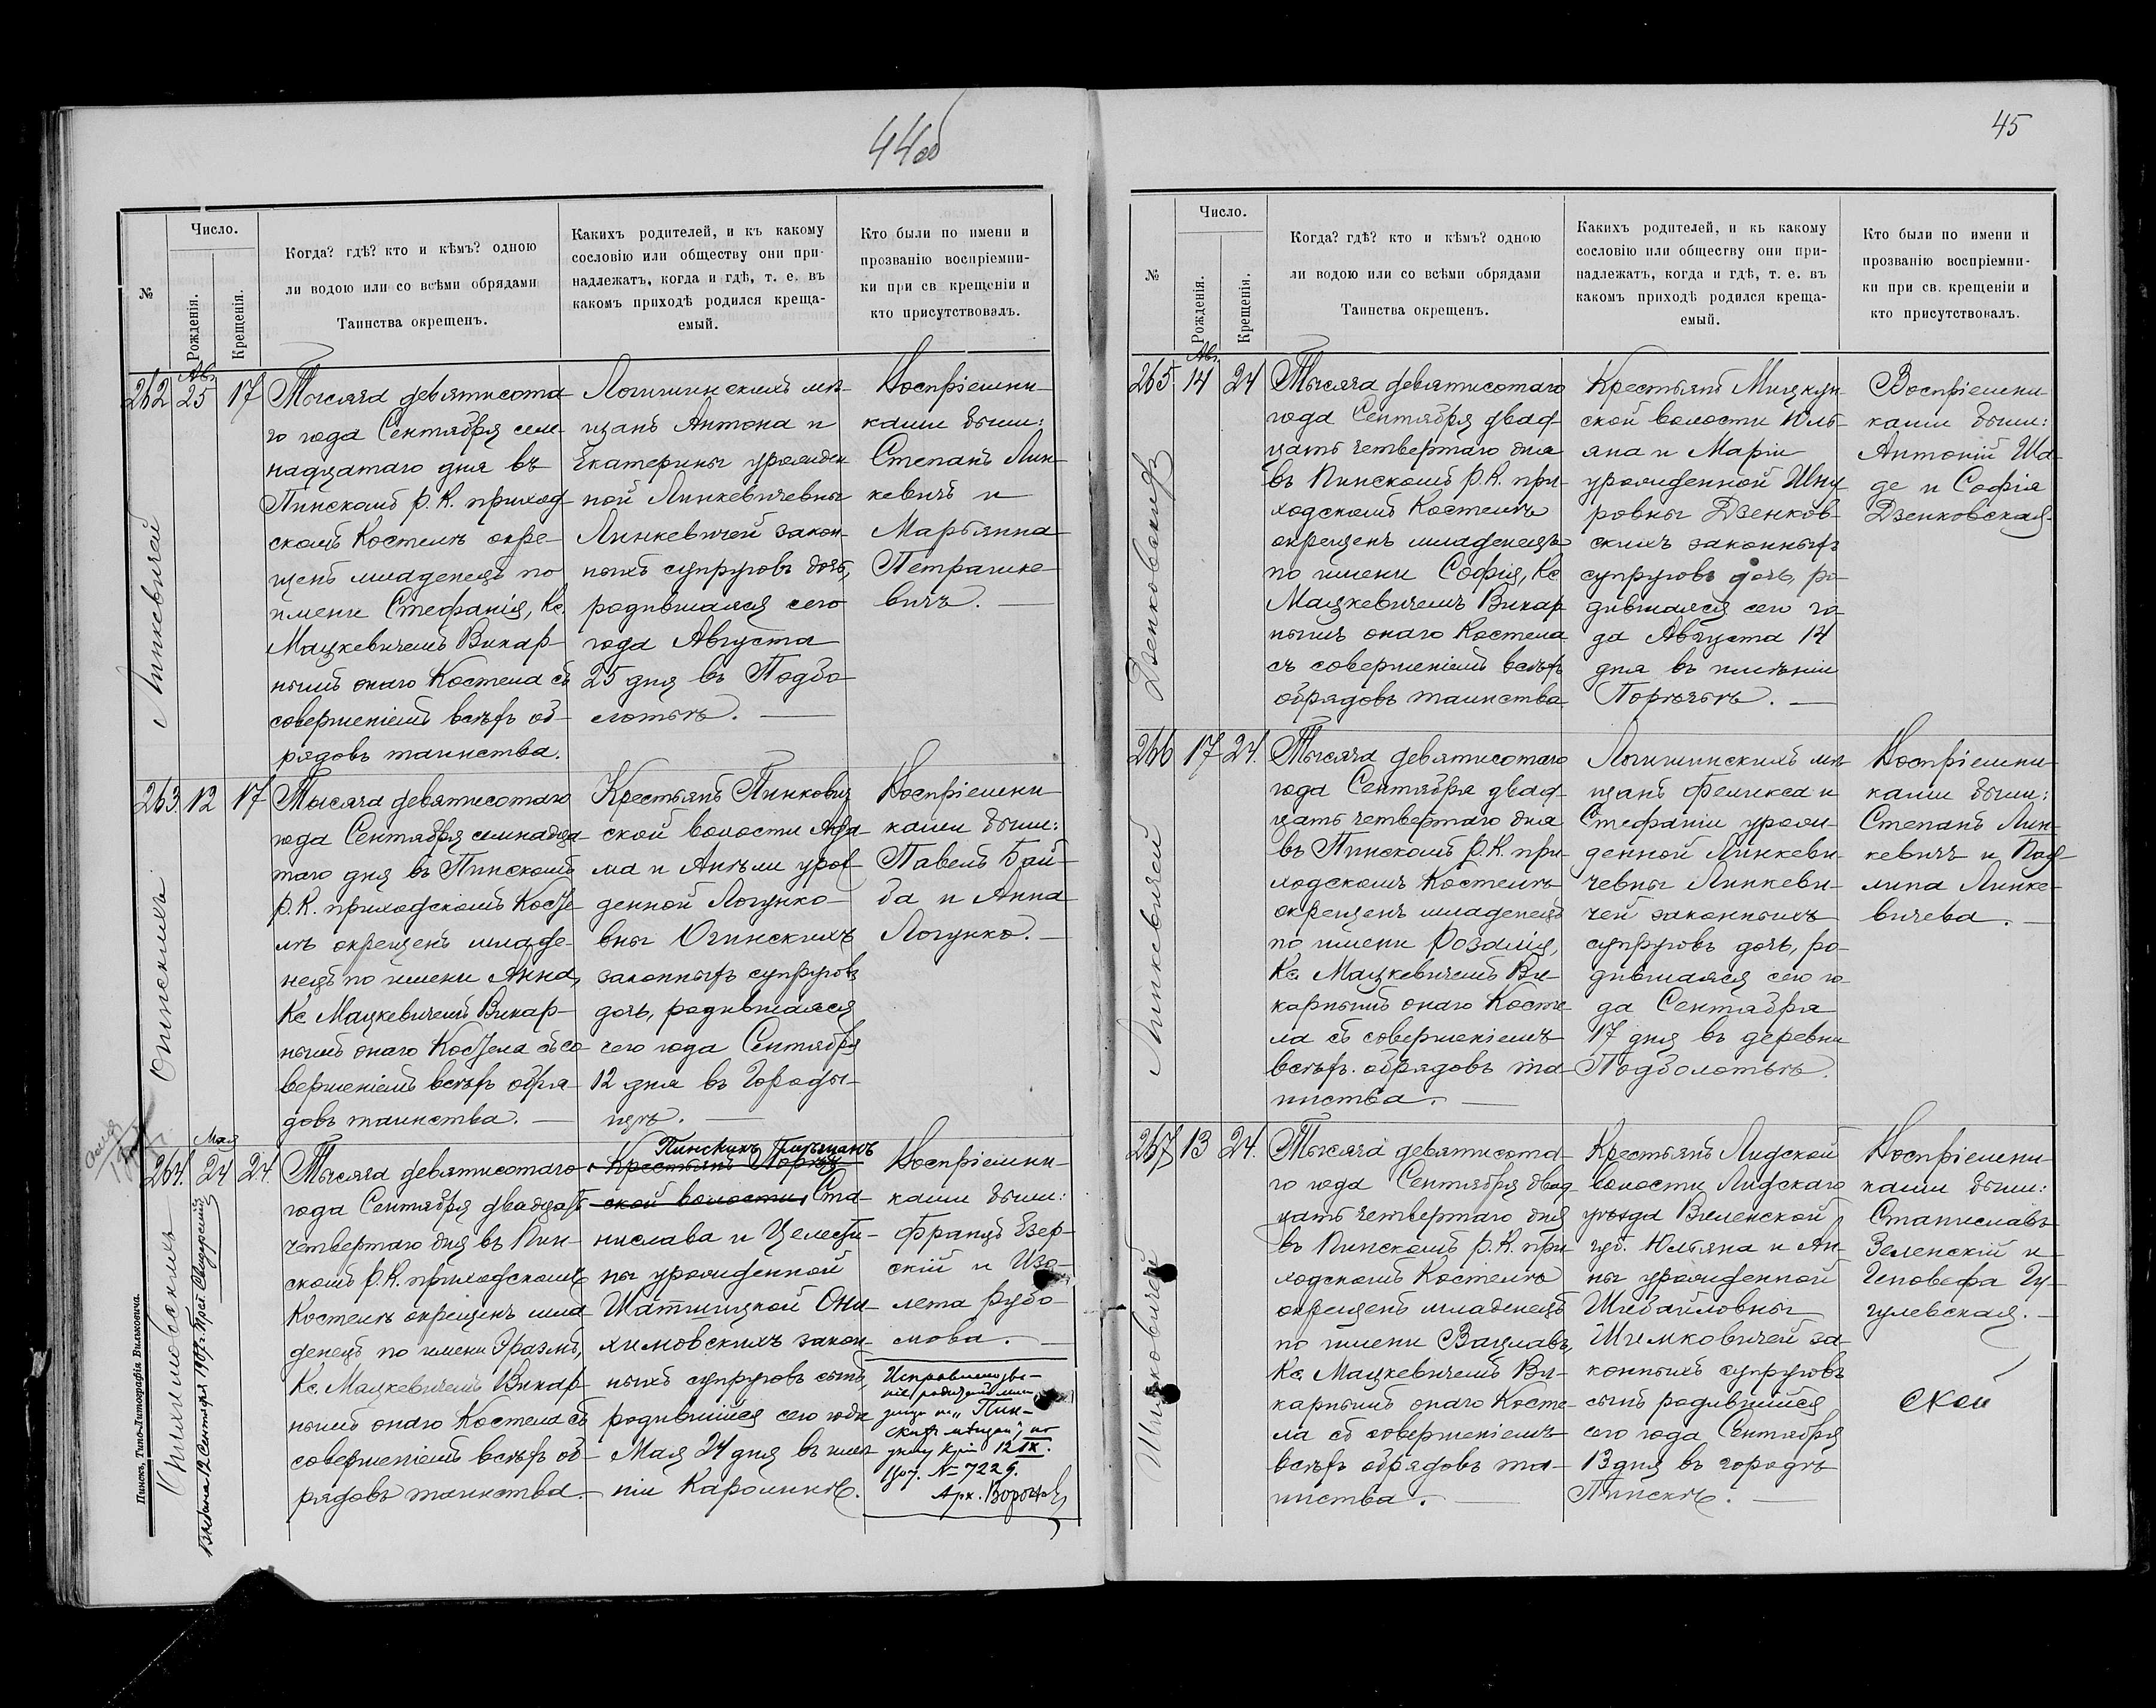 44об
№
Число.
Рожденія.
Крещенія.
Когда? гдѣ? кто и кѣмъ? одною
ли водою или со всѣми обрядами
Таинства окрещенъ.
Какихъ родителей, и къ какому
сословію или обществу они при-
надлежатъ, когда и гдѣ, т. е. въ
какомъ приходѣ родился креща-
емый.
Кто были по имени и
прозванію воспріемни-
ки при св крещеніи и
кто присутствовалъ.
262
Ав.
25
17
Линкевичей
Тысяча девятисота-
го года Сентября сем-
надцатаго дня въ
Пинскомъ Р. К. приход-
скомъ Костелѣ окре-
щенъ младенецъ по
имени Стефанія, Кс.
Мацкевичемъ Викар-
нымъ онаго Костела съ
совершеніемъ всѣхъ об-
рядовъ таинства.
Логишинскихъ мѣ-
щанъ Антона и
Екатерины урожден
ной Линкевичевны
Линкевичей закон-
ныхъ супруговъ дочь,
родившаяся сего
года Августа
25 дня въ Подбо-
лотьѣ. —
Воспріемни-
ками были:
Степанъ Лин-
кевичъ и
Марьянна
Петрашке-
вичъ. —
263.
12
17
Огинскихъ
Тысяча девятисотаго
года Сентября семнадца
таго дня въ Пинскомъ
Р. К. приходскомъ Косте-
лѣ окрещенъ младе-
нецъ по имени Анна,
Кс. Мацкевичемъ Викар-
нымъ онаго Костела съ со-
вершеніемъ всѣхъ обря-
довъ таинства. —
Крестьянъ Пинкович
ской волости Ада-
ма и Анѣли урож-
денной Логунко-
вны Огинскихъ
законныхъ супруговъ
дочь, родившаяся
сего года Сентября
12 дня въ Городи-
щѣ. —
Воспріемни-
ками были:
Павелъ Бай-
ба и Анна
Логунко. —
264.
Мая
24
24.
Выдана 12 Сентября 1907 г.
Тысяча девятисотаго
года Сентября двадцать
четвертаго дня въ Пин-
скомъ Р. К. приходскомъ
Костелѣ окрещенъ мла-
денецъ по имени Эразмъ,
Кс. Мацкевичемъ Викар-
нымъ онаго Костела съ
совершеніемъ всѣхъ об-
рядовъ таинства. —
Пинскихъ
Крестьянъ
ской волости, Ста-
нислава и Целести-
ны урожденной
законныхъ супруговъ сынъ,
родившійся сего года
Мая 24 дня въ имѣ-
ніи Каролинѣ.
Воспріемни-
ками были:
Францъ Езер-
скій и Изо-
лета Рубо-
мова. —
№ 7229.
Пинскъ, Типо-Литографія Вильковича.
45
№
Число.
Рожденія.
Крещенія.
Когда? гдѣ? кто и кѣмъ? одною
ли водою или со всѣми обрядами
Таинства окрещенъ.
Какихъ родителей, и къ какому
сословію или обществу они при-
надлежатъ, когда и гдѣ, т. е. въ
какомъ приходѣ родился креща-
емый.
Кто были по имени и
прозванію воспріемни-
ки при св. крещеніи и
кто присутствовалъ.
265.
Ав.
14
24
Дзенковскихъ
Тысяча девятисотаго
года Сентября двад-
цать четвертаго дня
въ Пинскомъ Р. К. при-
ходскомъ Костелѣ
окрещенъ младенецъ
по имени Софія, Кс.
Мацкевичемъ Викар-
нымъ онаго Костела
съ совершеніемъ всѣхъ
обрядовъ таинства
Крестьянъ
ской волости Юль-
яна и Маріи
урожденной
ровны Дзенков-
скихъ законныхъ
супруговъ дочь, ро-
дившаяся сего го-
да Августа 14
дня въ имѣніи
Порѣчьѣ. —
Воспріемни-
ками были:
Антоній Ша-
де и Софія
Дзенковская.
266
17
24.
Линкевичей
Тысяча девятисотаго
года Сентября двад-
цать четвертаго дня
въ Пинскомъ Р. К. при-
ходскомъ Костелѣ
окрещенъ младенецъ
по имени Розалія,
Кс. Мацкевичемъ Ви-
карнымъ онаго Косте-
ла съ совершеніемъ
всѣхъ обрядовъ та-
инства. —
Логишинскихъ мѣ-
щанъ Феликса и
Стефаніи урож-
денной Линкеви-
чевны Линкеви-
чей законныхъ
супруговъ дочь, ро-
дившаяся сего го-
да Сентября
17 дня въ деревни
Подболотьѣ.
Воспріемни-
ками были:
Степанъ Лин-
кевичъ и Пау-
лина Линке-
вичева. —
267
13
24.
Шимковичей
Тысяча девятисота-
го года Сентября двад-
цать четвертаго дня
въ Пинскомъ Р. К. при-
ходскомъ Костелѣ
окрещенъ младенецъ
по имени Вацлавъ,
Кс. Мацкевичемъ Ви-
карнымъ онаго Косте-
ла съ совершеніемъ
всѣхъ обрядовъ та-
инства. —
Крестьянъ Лидской
волости Лидскаго
уѣзда Виленской
губ. Юльяна и Ан-
ны урожденной
Шибайловны
Шимковичей за-
конныхъ супруговъ
сынъ родившійся
сего года Сентября
13 дня въ городѣ
Пинскѣ. —
Воспріемни-
ками были:
Станиславъ
Зеленскій и
Геновефа Гу-
гулевская. —
ской